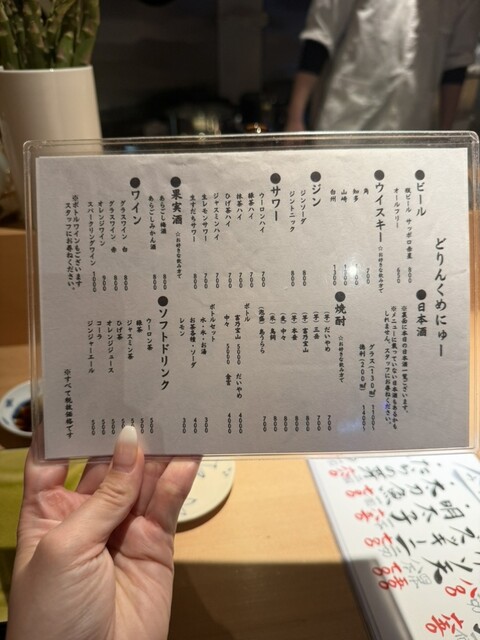 どりんくめにゅー
●ビール
瓶ビール サッポロ赤星 800
オールフリー 650
●ウイスキー ☆お好きな飲み方で
角 700
知多
山崎
白州 1300
●ジン
ジンソーダ 800
ジントニック 800
●サワー
ウーロンハイ 700
緑茶ハイ 700
抹茶ハイ 700
ひげ茶ハイ 700
ジャスミンハイ 700
生レモンサワー 700
生すだちサワー
●果実酒 ☆お好きな飲み方で
あらごし梅酒 800
あらごしみかん酒 800
●ワイン
グラスワイン 白 800
グラスワイン 赤 800
オレンジワイン 900
スパークリングワイン 1000
※ボトルワインもございます
スタッフにお尋ねください。
●日本酒
※裏面に本日の日本酒一覧ございます。
※メニューに載っていない日本酒もあるかも
しれません。スタッフにお尋ねください。
グラス(130㎖) 1100〜
徳利(200㎖) 1400〜
●焼酎 ☆お好きな飲み方で
(芋)だいやめ 700
(芋)三岳 700
(芋)富乃宝山 800
(芋)千亀 800
(麦)中々 800
(米)鳥飼 800
(泡盛)島うらら 700
ボトル
富乃宝山 5000 だいやめ 4000
中々 5000 金宮 4000
ボトルセット
水・氷・お湯 300
お茶各種・ソーダ 400
レモン 300
●ソフトドリンク
ウーロン茶
緑茶 500
ジャスミン茶 500
ひげ茶 500
オレンジジュース 500
コーラ 500
ジンジャーエール 500
※すべて税抜価格です